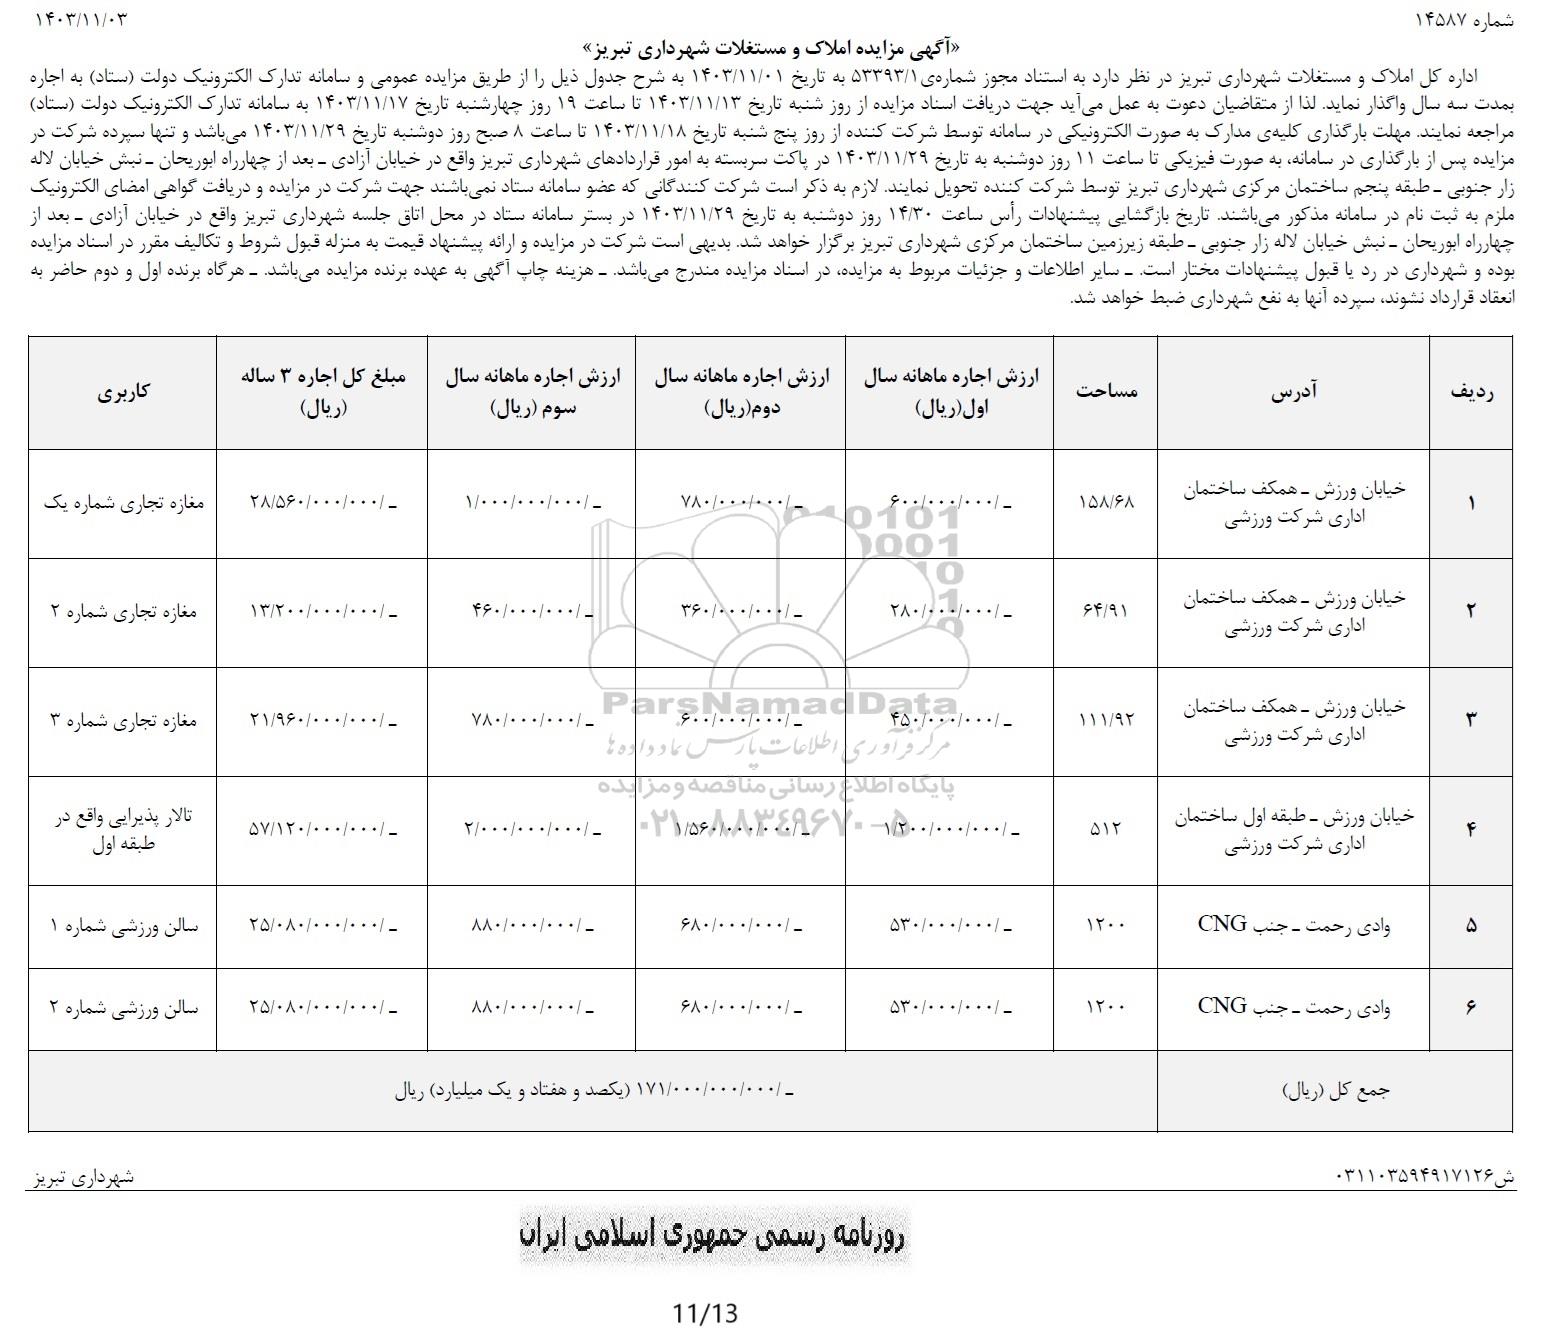 شماره ۱۴۵۸۷
۱۴۰۳/۱۱/۰۳
«آگهی مزایده املاک و مستغلات شهرداری تبریز»
اداره کل املاک و مستغلات شهرداری تبریز در نظر دارد به استناد مجوز شماره‌ی۵۳۳۹۳/۱ به تاریخ ۱۴۰۳/۱۱/۰۱ به شرح جدول ذیل را از طریق مزایده عمومی و سامانه تدارک الکترونیک دولت (ستاد) به اجاره
بمدت سه سال واگذار نماید. لذا از متقاضیان دعوت به عمل می‌آید جهت دریافت اسناد مزایده از روز شنبه تاریخ ۱۴۰۳/۱۱/۱۳ تا ساعت ۱۹ روز چهارشنبه تاریخ ۱۴۰۳/۱۱/۱۷ به سامانه تدارک الکترونیک دولت (ستاد)
مراجعه نمایند. مهلت بارگذاری کلیه‌ی مدارک به صورت الکترونیکی در سامانه توسط شرکت کننده از روز پنج شنبه تاریخ ۱۴۰۳/۱۱/۱۸ تا ساعت ۸ صبح روز دوشنبه تاریخ ۱۴۰۳/۱۱/۲۹ می‌باشد و تنها سپرده شرکت در
مزایده پس از بارگذاری در سامانه، به صورت فیزیکی تا ساعت ۱۱ روز دوشنبه به تاریخ ۱۴۰۳/۱۱/۲۹ در پاکت سربسته به امور قراردادهای شهرداری تبریز واقع در خیابان آزادی ـ بعد از چهارراه ابوریحان ـ نبش خیابان لاله
زار جنوبی ـ طبقه پنجم ساختمان مرکزی شهرداری تبریز توسط شرکت کننده تحویل نمایند. لازم به ذکر است شرکت کنندگانی که عضو سامانه ستاد نمی‌باشند جهت شرکت در مزایده و دریافت گواهی امضای الکترونیک
ملزم به ثبت نام در سامانه مذکور می‌باشند. تاریخ بازگشایی پیشنهادات رأس ساعت ۱۴/۳۰ روز دوشنبه به تاریخ ۱۴۰۳/۱۱/۲۹ در بستر سامانه ستاد در محل اتاق جلسه شهرداری تبریز واقع در خیابان آزادی ـ بعد از
چهارراه ابوریحان ـ نبش خیابان لاله زار جنوبی ـ طبقه زیرزمین ساختمان مرکزی شهرداری تبریز برگزار خواهد شد. بدیهی است شرکت در مزایده و ارائه پیشنهاد قیمت به منزله قبول شروط و تکالیف مقرر در اسناد مزایده
بوده و شهرداری در رد یا قبول پیشنهادات مختار است. ـ سایر اطلاعات و جزئیات مربوط به مزایده، در اسناد مزایده مندرج می‌باشد. ـ هزینه چاپ آگهی به عهده برنده مزایده می‌باشد. ـ هرگاه برنده اول و دوم حاضر به
انعقاد قرارداد نشوند، سپرده آنها به نفع شهرداری ضبط خواهد شد.
ردیف آدرس مساحت ارزش اجاره ماهانه سال اول(ریال) ارزش اجاره ماهانه سال دوم(ریال) ارزش اجاره ماهانه سال سوم (ریال) مبلغ کل اجاره ۳ ساله (ریال) کاربری
۱ خیابان ورزش ـ همکف ساختمان اداری شرکت ورزشی ۱۵۸/۶۸ ۶۰۰/۰۰۰/۰۰۰/ـ ۷۸۰/۰۰۰/۰۰۰/ـ ۱/۰۰۰/۰۰۰/۰۰۰/ـ ۲۸/۵۶۰/۰۰۰/۰۰۰/ـ مغازه تجاری شماره یک
۲ خیابان ورزش ـ همکف ساختمان اداری شرکت ورزشی ۶۴/۹۱ ۲۸۰/۰۰۰/۰۰۰/ـ ۳۶۰/۰۰۰/۰۰۰/ـ ۴۶۰/۰۰۰/۰۰۰/ـ ۱۳/۲۰۰/۰۰۰/۰۰۰/ـ مغازه تجاری شماره ۲
۳ خیابان ورزش ـ همکف ساختمان اداری شرکت ورزشی ۱۱۱/۹۲ ۴۵۰/۰۰۰/۰۰۰/ـ ۶۰۰/۰۰۰/۰۰۰/ـ ۷۸۰/۰۰۰/۰۰۰/ـ ۲۱/۹۶۰/۰۰۰/۰۰۰/ـ مغازه تجاری شماره ۳
۴ خیابان ورزش ـ طبقه اول ساختمان اداری شرکت ورزشی ۵۱۲ ۱/۲۰۰/۰۰۰/۰۰۰/ـ ۱/۵۶۰/۰۰۰/۰۰۰/ـ ۲/۰۰۰/۰۰۰/۰۰۰/ـ ۵۷/۱۲۰/۰۰۰/۰۰۰/ـ تالار پذیرایی واقع در طبقه اول
۵ وادی رحمت ـ جنب CNG ۱۲۰۰ ۵۳۰/۰۰۰/۰۰۰/ـ ۶۸۰/۰۰۰/۰۰۰/ـ ۸۸۰/۰۰۰/۰۰۰/ـ ۲۵/۰۸۰/۰۰۰/۰۰۰/ـ سالن ورزشی شماره ۱
۶ وادی رحمت ـ جنب CNG ۱۲۰۰ ۵۳۰/۰۰۰/۰۰۰/ـ ۶۸۰/۰۰۰/۰۰۰/ـ ۸۸۰/۰۰۰/۰۰۰/ـ ۲۵/۰۸۰/۰۰۰/۰۰۰/ـ سالن ورزشی شماره ۲
جمع کل (ریال) ۱۷۱/۰۰۰/۰۰۰/۰۰۰/ـ (یکصد و هفتاد و یک میلیارد) ریال
ParsNamadData
مرکز فرآوری اطلاعات پارس نماد داده ها
پایگاه اطلاع رسانی مناقصه و مزایده
۰۲۱-۸۸۳۴۹۶۷۰-۵
ش۰۳۱۱۰۳۵۹۴۹۱۷۱۲۶
شهرداری تبریز
روزنامه رسمی جمهوری اسلامی ایران
11/13